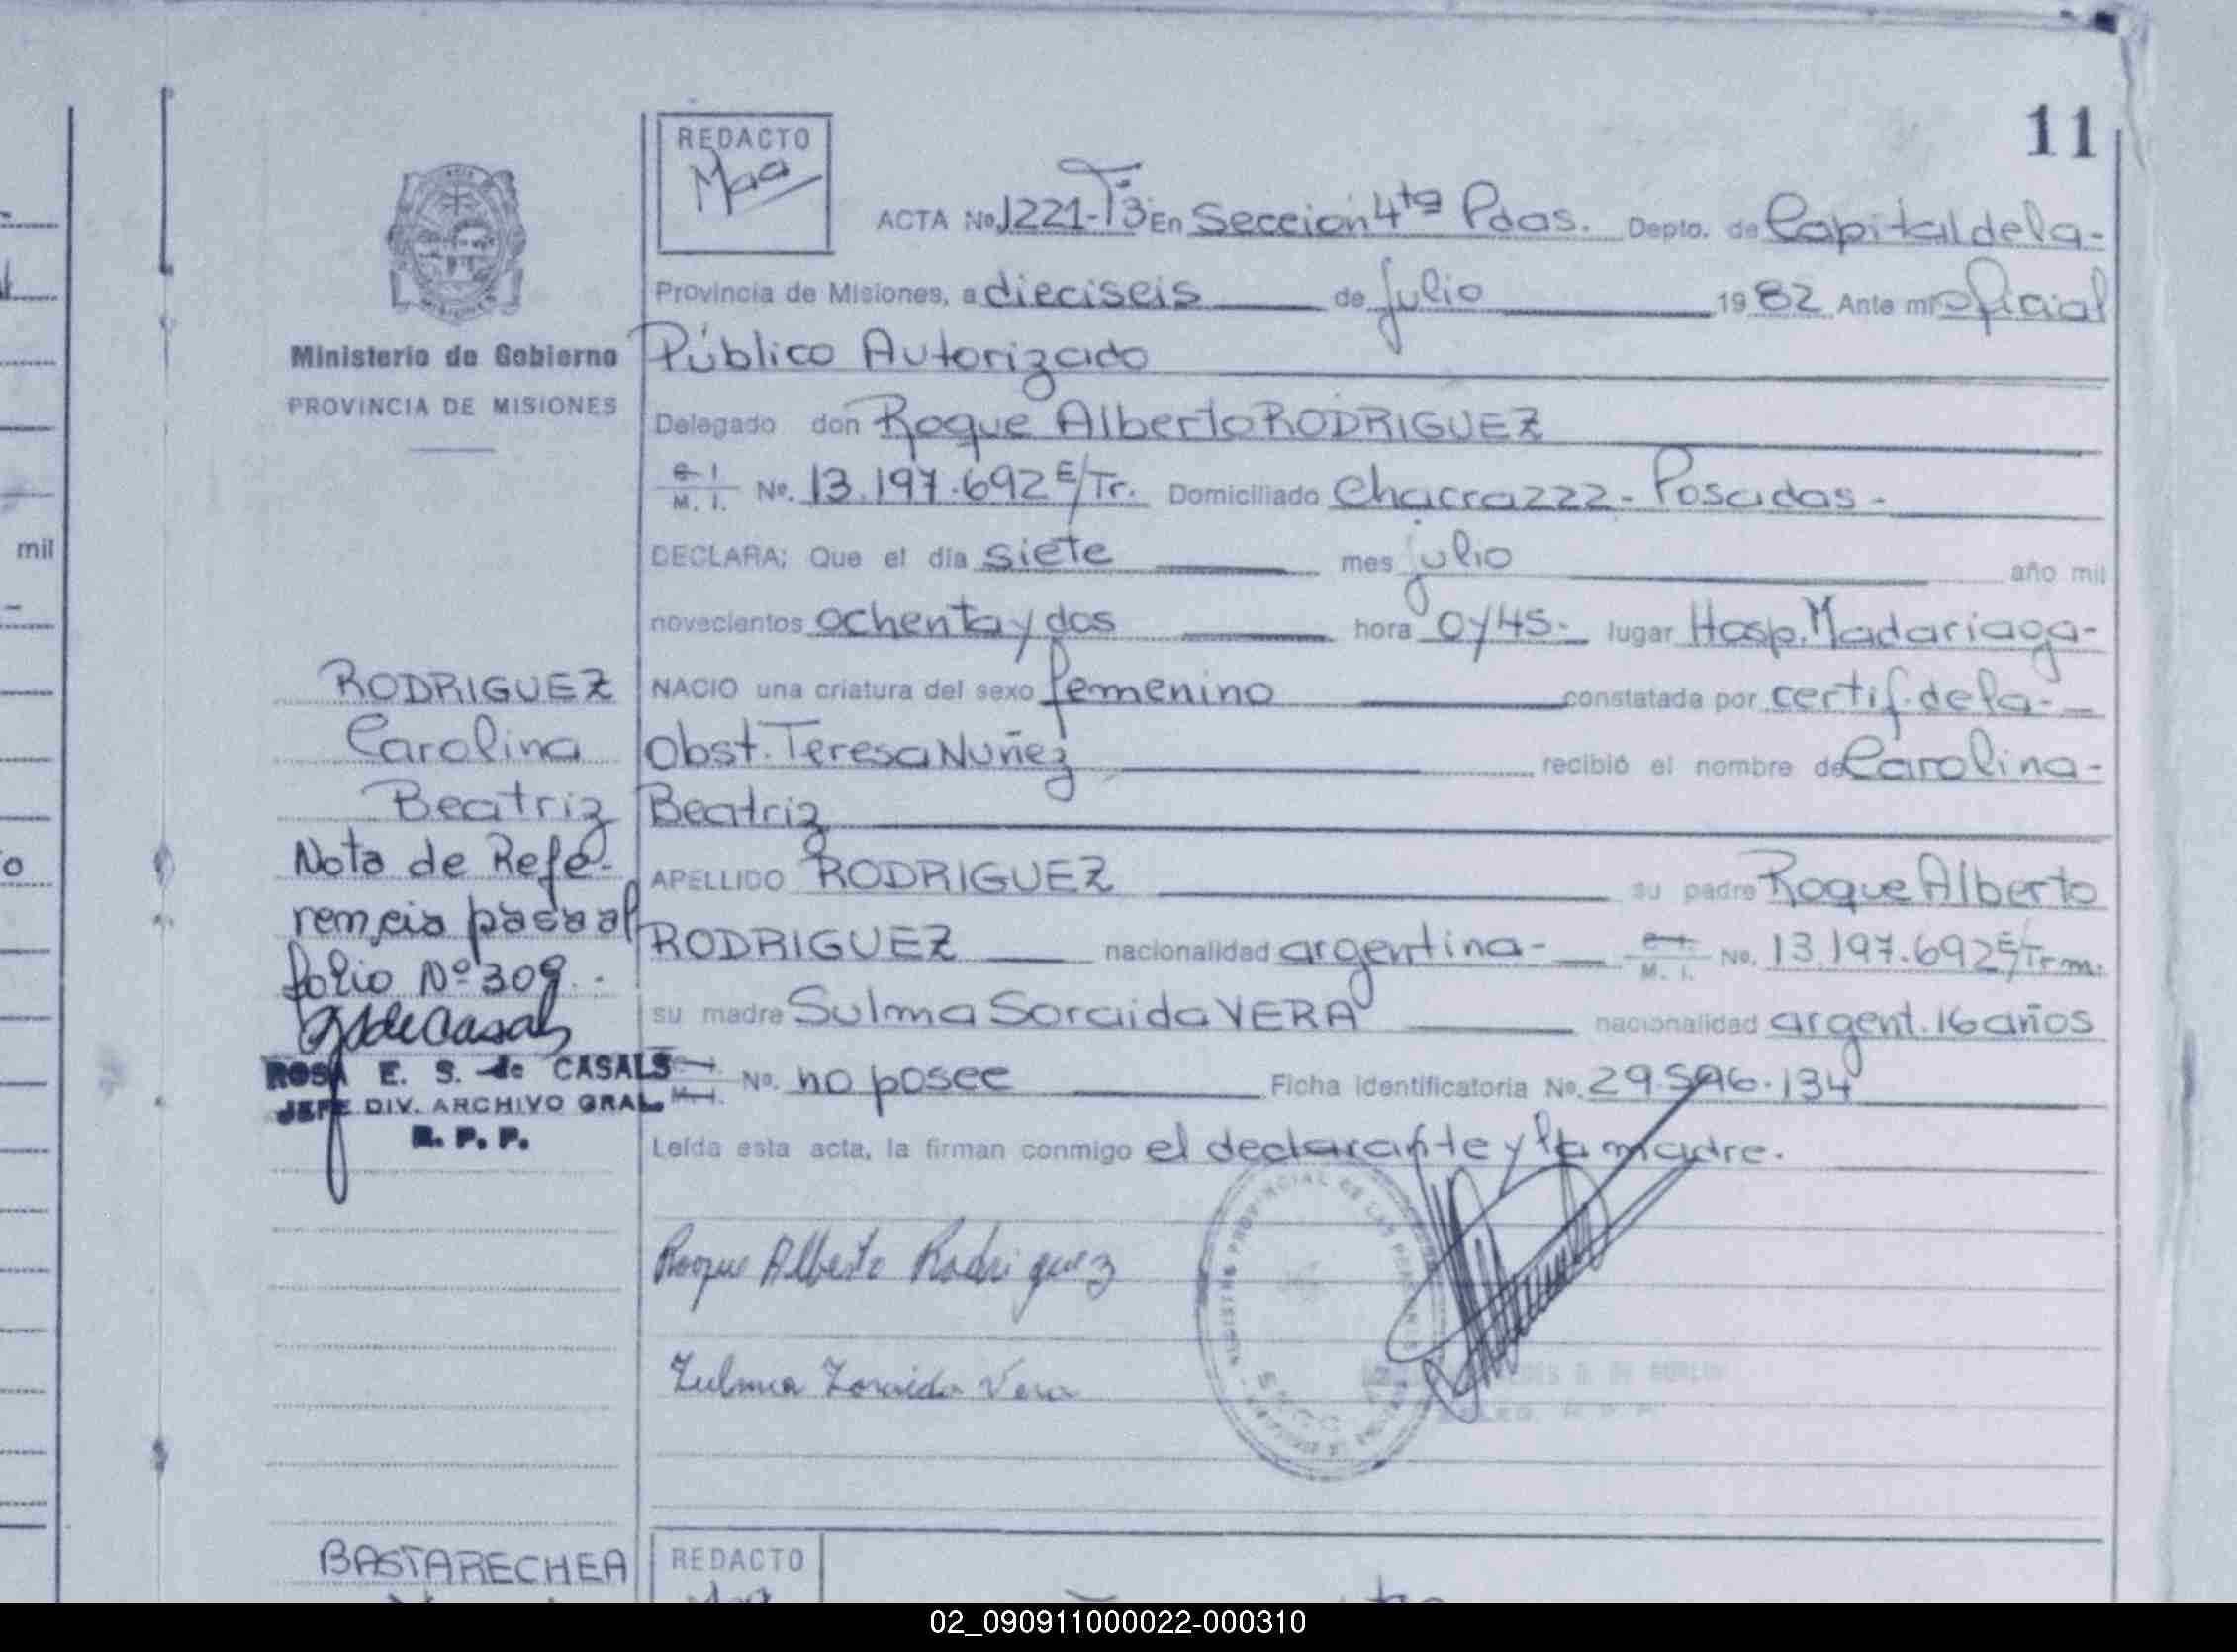 11
REDACTO
Maa
ACTA No. 1221-Tº3 En Sección 4ta Pdas. Depto. de Capital de la-
Provincia de Misiones, a dieciseis de julio 1982 Ante mi Oficial
Público Autorizado
Delegado don Roque Alberto RODRIGUEZ
M. I. No. 13.197.692 E/Tr. Domiciliado Chacra 222 - Posadas -
DECLARA; Que el día siete mes julio año mil
novecientos ochenta y dos hora 0 y 45.- lugar Hosp. Madariaga-
NACIO una criatura del sexo femenino constatada por certif. de la-
Obst. Teresa Nuñez recibió el nombre de Carolina-
Beatriz
APELLIDO RODRIGUEZ su padre Roque Alberto
RODRIGUEZ nacionalidad argentina- M. I. No. 13.197.692 E/Trm.
su madre Sulma Soraida VERA nacionalidad argent. 16 años
No. no posee Ficha identificatoria No. 29.596.134
Leída esta acta, la firman conmigo el declarante y la madre.
Roque Alberto Rodriguez
Zulma Zoraida Vera
REGISTRO PROVINCIAL DE LAS PERSONAS
Ministerio de Gobierno
PROVINCIA DE MISIONES
RODRIGUEZ
Carolina
Beatriz
Nota de Refe-
rencia pasa al
folio Nº 309.-
ROSA E. S. de CASALS
JEFE DIV. ARCHIVO GRAL.
R. P. P.
BASTARECHEA
REDACTO
mil
02_090911000022-000310